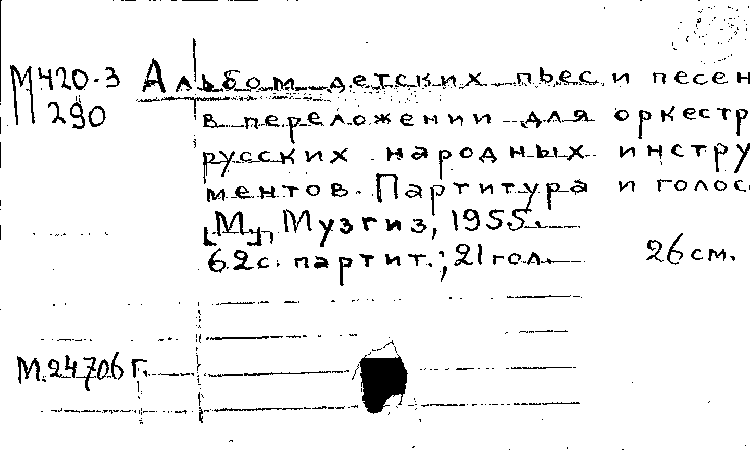 М420-3 Альбом детских пьес и песен
290 в переложении для оркестр
русских народных инстру
ментов. Партитура и голос
[М], Музгиз, 1955.
62с. партит.; 21 гол. 26 см.
М.24706 г.